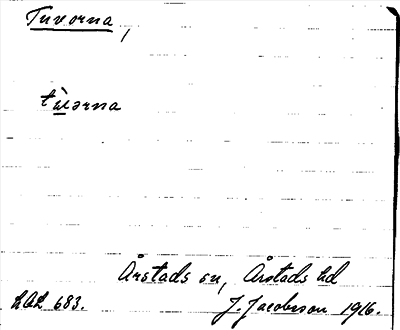 Tuvorna,
tẁərna
Årstads sn, Årstads hd
LAL 683. J. Jacobsson 1916.